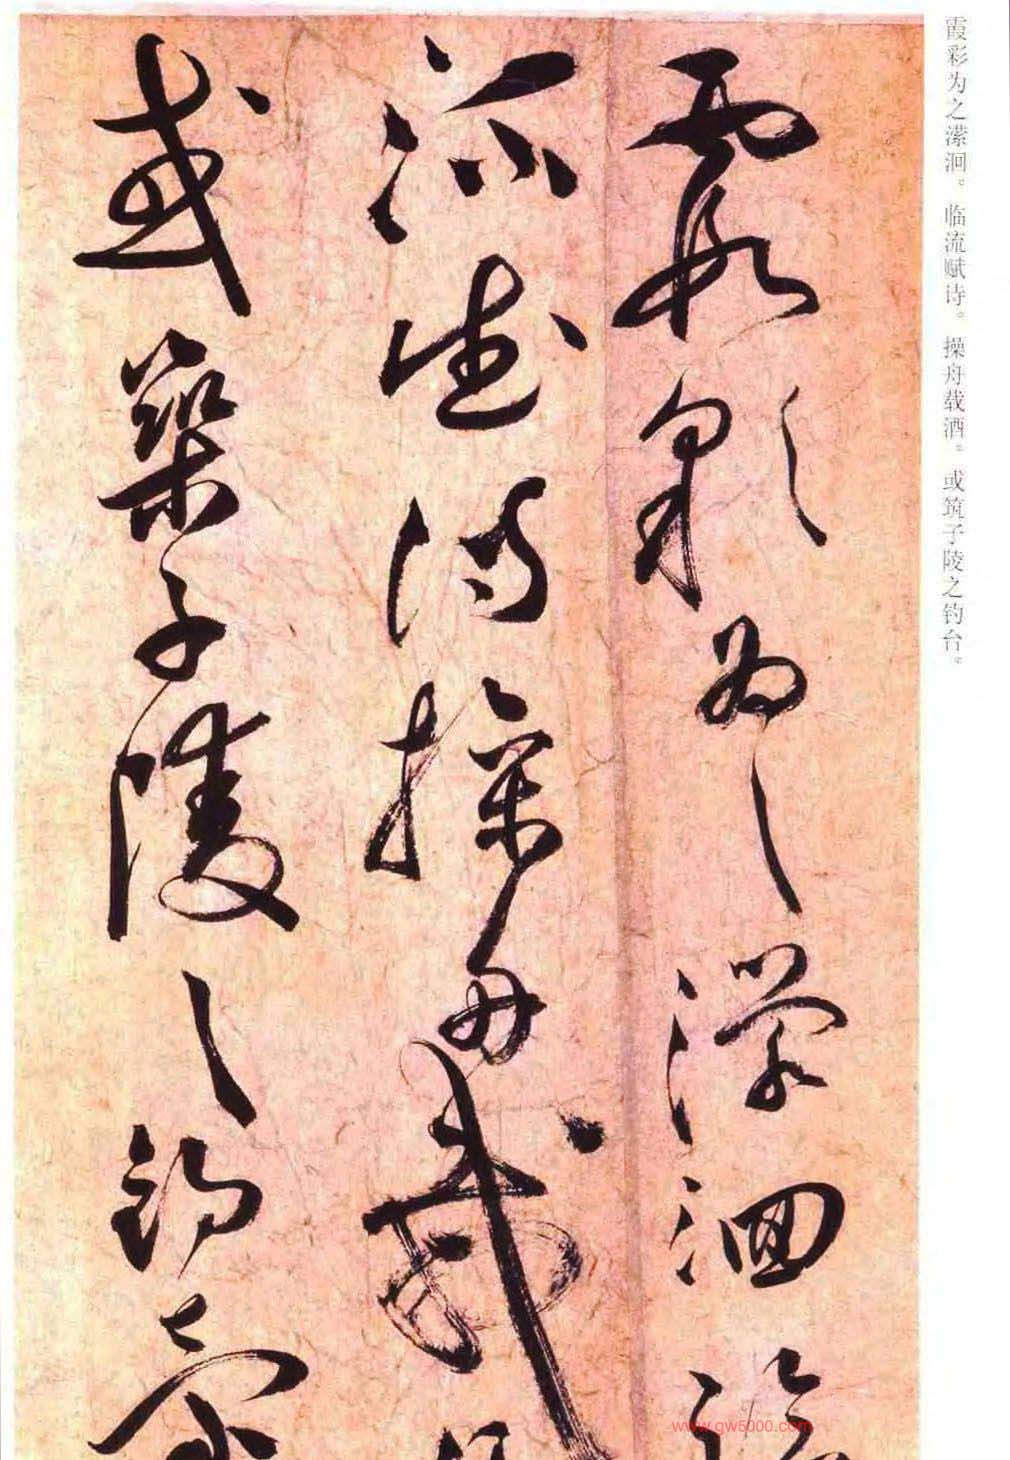 霞彩为之潆洄。临流赋诗。操舟载酒。或筑子陵之钓台。
霞彩為之濚洄臨
流賦詩操舟載酒
或築子陵之釣臺
www.gw5000.com